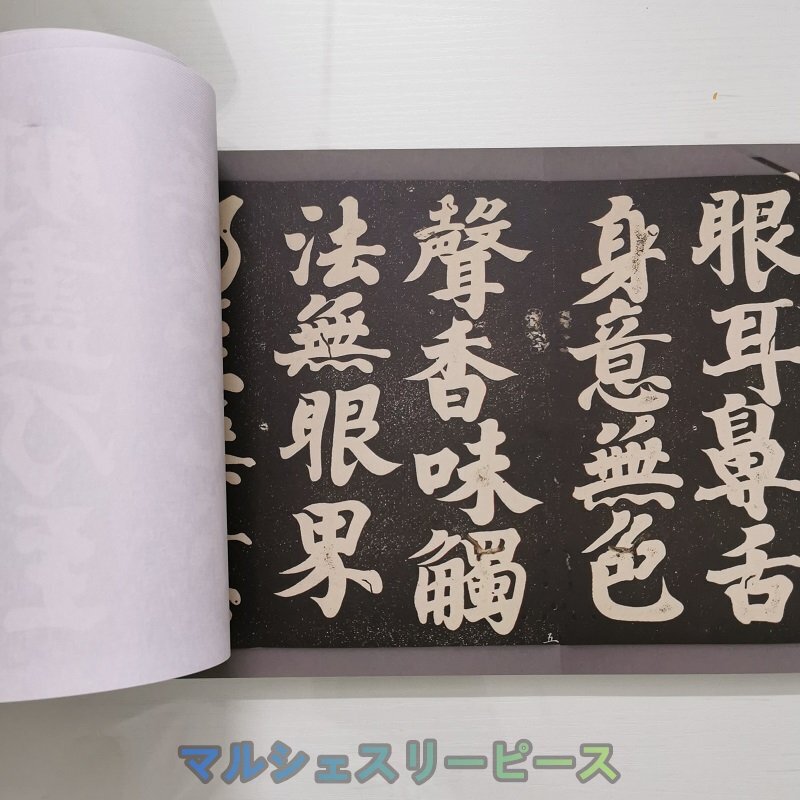 眼耳鼻舌
身意無色
聲香味觸
法無眼界
五
マルシェスリーピース